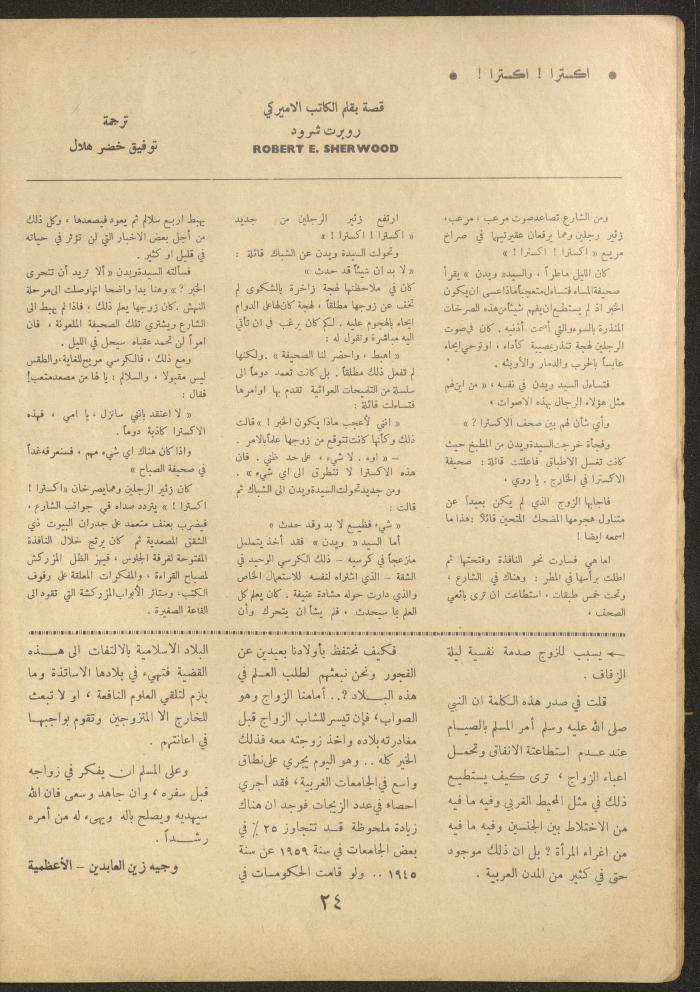 • اكسترا ! اكسترا ! •
قصة بقلم الكاتب الاميركي
روبرت شرود
ROBERT E. SHERWOOD
ترجمة
توفيق خضر هلال
ومن الشارع تصاعد صوت مرعب ، مرعب ،
زئير رجلين وهما يرفعان عقيرتيهما في صراخ
مريع « اكسترا ! اكسترا ! »
كان الليل ماطراً ، والسيد« ويدن » يقرأ
صحيفة المساء فتساءل متعجباً ماذا عسى ان يكون
الخبر اذ لم يستطع ان يفهم شيئاً من هذه الصرخات
المنذرة بالسوء والتي أصمت أذنيه . كان في صوت
الرجلين لهجة تنذر بمصيبة كأداء ، او توحي ايحاء
عابساً بالحرب والدمار والأوبئه .
فتساءل السيد ويدن في نفسه ، « من اين لهم
مثل هؤلاء الرجال بهذه الاصوات ،
وأي شأن لهم بين صحف الاكسترا ؟ »
وفجأة خرجت السيدة ويدن من المطبخ حيث
كانت تغسل الاطباق فأعلنت قائلة : صحيفة
الاكسترا في الخارج . يا روي ،
فاجابها الزوج الذي لم يكن بعيداً عن
متناول هجومها المضحك المتحين قائلاً :هذا ما
اسمعه ايضا !
اما هي فسارت نحو النافذة وفتحتها ثم
اطلت برأسها في المطر : وهناك في الشارع ،
وتحت خمس طبقات ، استطاعت ان ترى بائعي
الصحف ،
ارتفع زئير الرجلين من جديد
« اكسترا ! اكسترا ! »
وتحولت السيدة ويدن عن الشباك قائلة :
« لا بد ان شيئاً قد حدث »
كان في ملاحظتها لهجة زاخرة بالشكوى لم
تخف عن زوجها مطلقاً ، لهجة كان لها على الدوام
ايحاء بالهجوم عليه . لكم كان يرغب في ان تأتي
اليه مباشرة وتقول له :
« اهبط ، واحضر لنا الصحيفة » .ولكنها
لم تفعل ذلك مطلقاً . بل كانت تعمد دوماً الى
سلسلة من التلميحات العوائية تقدم بها اوامرها
فتساءلت قائلة :
« انني لأعجب ماذا يكون الخبر ! » قالت
ذلك وكأنها كانت تتوقع من زوجها علماً بالامر .
– « اوه . لا شيء ، على حد ظني . فان
هذه الاكسترا لا تتطرق الى اي شيء » .
ومن جديد تحولت السيدة ويدن الى الشباك ثم
قالت :
« شيء فظيع لا بد وقد حدث »
أما السيد « ويدن » فقد أخذ يتململ
منزعجاً في كرسيه – ذلك الكرسي الوحيد في
الشقة – الذي اشتراه لنفسه للاستعمال الخاص
والذي دارت حوله مشادة عنيفة . كان يعلم كل
العلم بما سيحدث ، فلم يشأ ان يتحرك وأن
يهبط اربع سلالم ثم يعود فيصعدها ، وكل ذلك
من أجل بعض الاخبار التي لن تؤثر في حياته
في قليل او كثير .
فسألته السيدة ويدن « ألا تريد أن تتحرى
الخبر ؟ » وهنا بدا واضحا انها وصلت الى مرحلة
النهش . كان زوجها يعلم ذلك ، فاذا لم يهبط الى
الشارع ويشتري تلك الصحيفة الملعونة ، فان
امراً لن تحمد عقباه سيحل في الليل .
ومع ذلك ، فالكرسي مريح للغاية، والطقس
ليس مقبولا ، والسلالم : يا لها من مصعد متعب!
فقال :
« لا اعتقد بانني سانزل ، يا امي ، فهذه
الاكسترا كاذبة دوماً .
واذا كان هناك اي شيء مهم ، فسنعرفه غداً
في صحيفة الصباح »
كان زئير الرجلين وهما يصرخان « اكسترا !
اكسترا ! » يتردد صداه في جوانب الشارع ،
فيضرب بعنف متعمد على جدران البيوت ذي
الشقق المصعدية ثم كان يرتج خلال النافذة
المفتوحة لغرفة الجلوس ، فيهز الظل المزركش
لمصباح القراءة ، والمفكرات المعلقة على رفوف
الكتب، وستائر الأبواب المزركشة التي تقود الى
القاعة الصغيرة .
← يسبب للزوج صدمة نفسية ليلة
الزفاف .
قلت في صدر هذه الكلمة ان النبي
صلى الله عليه وسلم أمر المسلم بالصيام
عند عدم استطاعتة الانفاق وتحمل
اعباء الزواج ، ترى كيف يستطيع
ذلك في مثل المحيط الغربي وفيه ما فيه
من الاختلاط بين الجنسين وفيه ما فيه
من اغراء المرأة ؟ بل ان ذلك موجود
حتى في كثير من المدن العربية .
فكيف نحتفظ بأولادنا بعيدين عن
الفجور ونحن نبعثهم لطلب العلم في
هذه البلاد ؟.. أمامنا الزواج وهو
الصواب، فإن تيسر للشاب الزواج قبل
مغادرته بلاده واخذ زوجته معه فذلك
الخير كله .. وهو اليوم يجري على نطاق
واسع في الجامعات الغربية، فقد اجري
احصاء في عدد الزيجات فوجد ان هناك
زيادة ملحوظة قد تتجاوز ٢٥ ٪ في
بعض الجامعات في سنة ١٩٥٩ عن سنة
١٩٤٥ .. ولو قامت الحكومات في
البلاد الاسلامية بالالتفات الى هذه
القضية فتهيء في بلادها الاساتذة وما
يلزم لتلقي العلوم النافعة ، او لا تبعث
للخارج الا المتزوجين وتقوم بواجبها
في اعانتهم .
وعلى المسلم ان يفكر في زواجه
قبل سفره ، وان جاهد وسعى فان الله
سيهديه ويصلح باله ويهيء له من أمره
رشداً .
وجيه زين العابدين – الأعظمية
٢٤